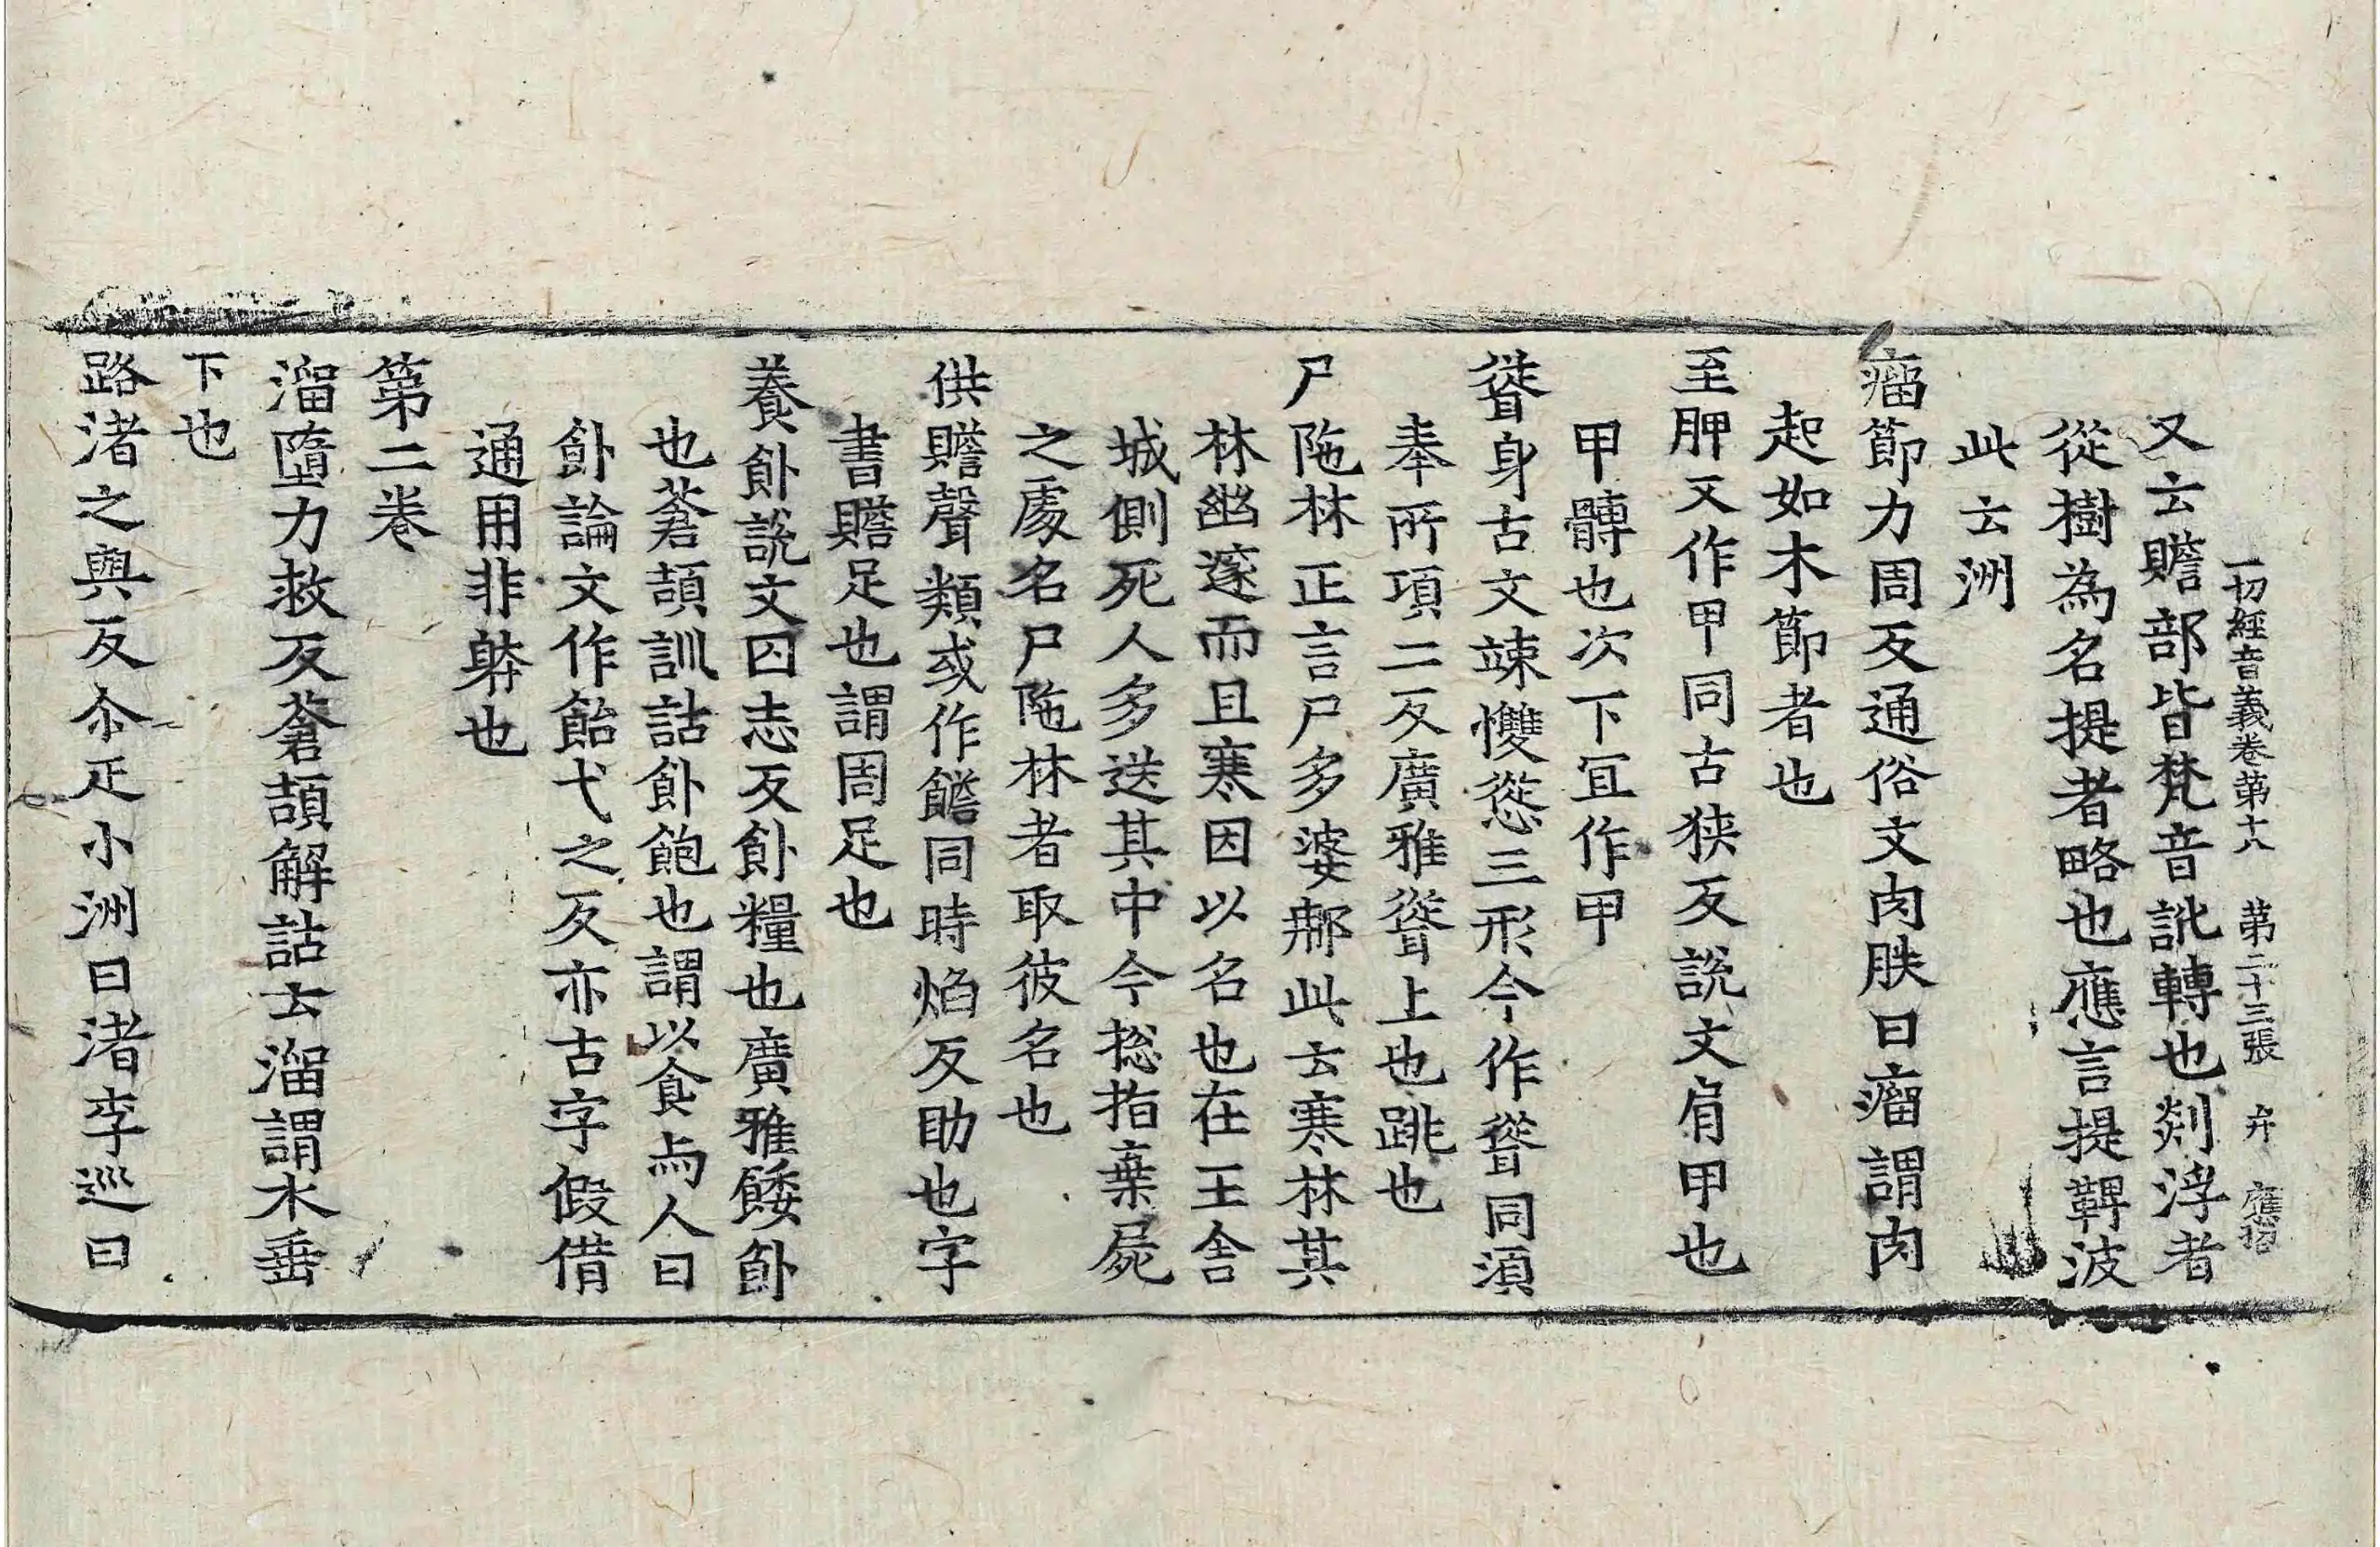 一切經音義卷第十八　第二十三張　弁
又云贍部皆梵音訛轉也剡浮者
從樹為名提者略也應言提鞞波
此云洲
瘤節力周反通俗文肉胅曰瘤謂肉
起如木節者也
至胛又作甲同古狹反說文肩甲也
甲髆也次下冝作甲
聳身古文竦㩳慫三形今作聳同須
奉所項二反廣雅聳上也跳也
尸陁林正言尸多婆那此云寒林其
林幽邃而且寒因以名也在王舍
城側死人多送其中今揔指棄屍
之處名尸陁林者取彼名也
供贍聲類或作饍同時焰反助也字
書贍足也謂周足也
養飤說文囚志反飤糧也廣雅餧飤
也蒼頡訓詁飤飽也謂以食与人曰
飤論文作飴弋之反亦古字假借
通用非躰也
第二卷
溜墮力救反蒼頡解詁云溜謂水垂
下也
路渚之與反尒疋小洲曰渚李巡曰